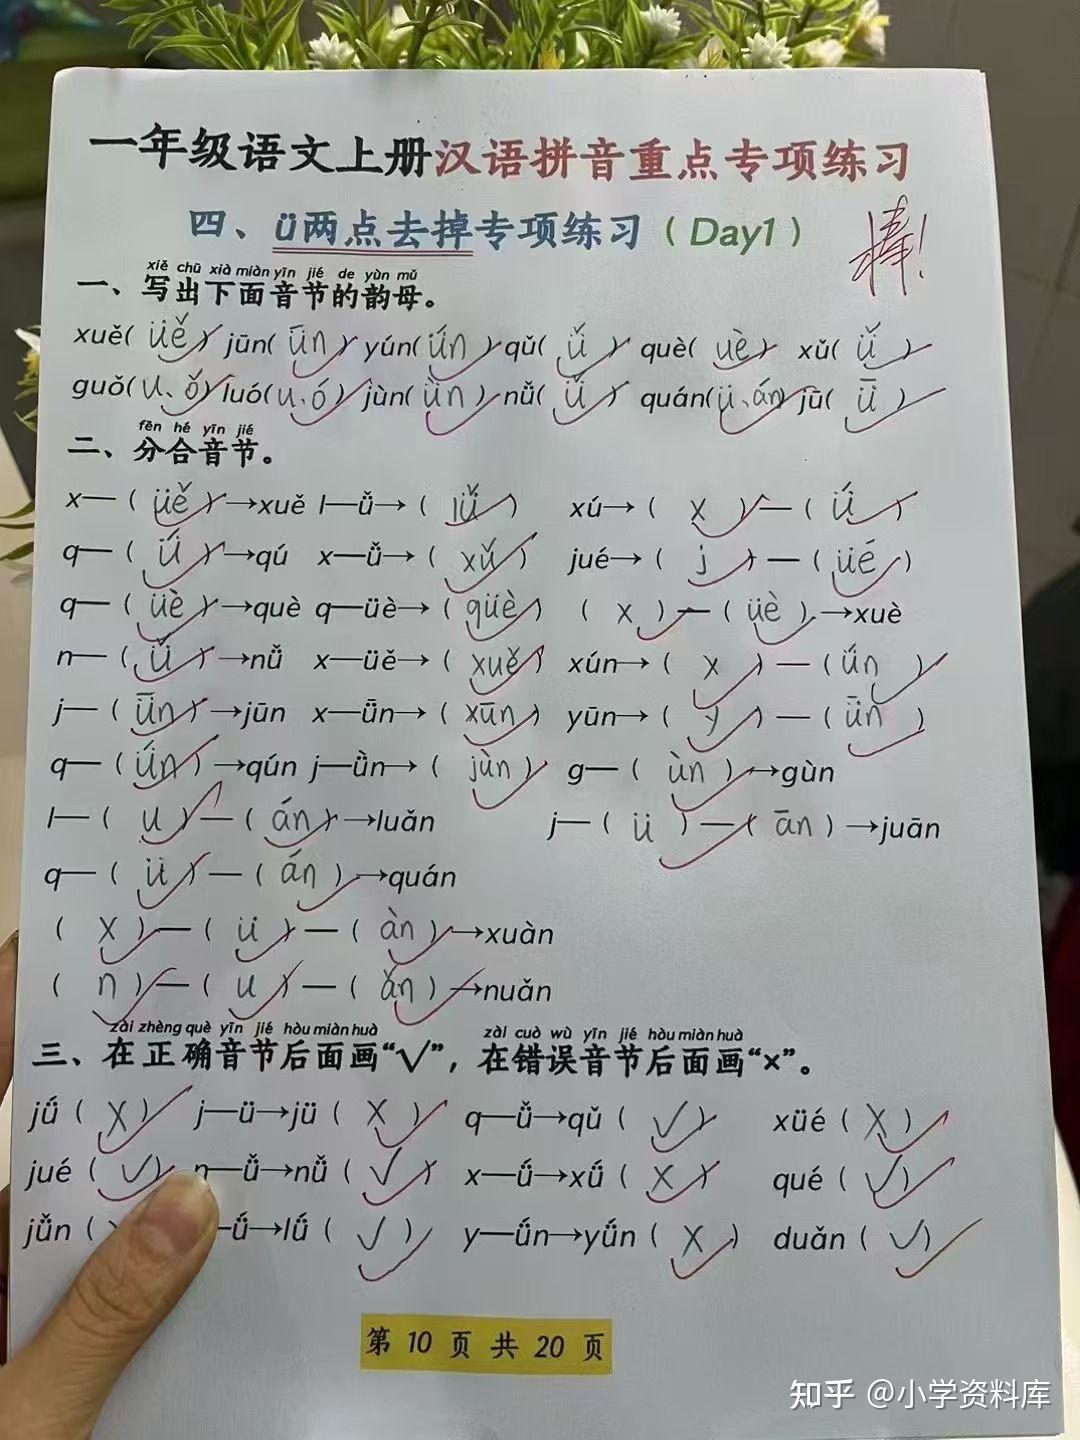 一年级语文上册汉语拼音重点专项练习
四、ü两点去掉专项练习（Day1）
棒！
xiě chū xià miàn yīn jié de yùn mǔ
一、写出下面音节的韵母。
xuě( üě ) jūn( ǖn ) yún( ǘn ) qǔ( ǚ ) què( üè ) xǔ( ǚ )
guǒ( u、ǒ ) luó( u、ó ) jùn( ǜn ) nǚ( ǚ ) quán( ü、án ) jū( ǖ )
fēn hé yīn jié
二、分合音节。
x—( üě )→xuě l—ǚ→( lǚ ) xú→( x )—( ǘ )
q—( ǘ )→qú x—ǚ→( xǔ ) jué→( j )—( üé )
q—( üè )→què q—üè→( qüè ) ( x )—( üè )→xuè
n—( ǚ )→nǚ x—üě→( xuě ) xún→( x )—( ǘn )
j—( ǖn )→jūn x—ǖn→( xūn ) yūn→( y )—( ǖn )
q—( ǘn )→qún j—ǜn→( jùn ) g—( ùn )→gùn
l—( u )—( án )→luǎn j—( ü )—( ān )→juān
q—( ü )—( án )→quán
( x )—( ü )—( àn )→xuàn
( n )—( u )—( ǎn )→nuǎn
zài zhèng què yīn jié hòu miàn huà zài cuò wù yīn jié hòu miàn huà
三、在正确音节后面画“√”，在错误音节后面画“×”。
jǘ( X ) j—ü→jü( X ) q—ǚ→qǔ( √ ) xüé( X )
jué( √ ) n—ǚ→nǚ( √ ) x—ǘ→xǘ( X ) qué( √ )
jǚn( —ǘ→lǘ( √ ) y—ǘn→yǘn( X ) duǎn( √ )
第 10 页 共 20 页
知乎 @小学资料库